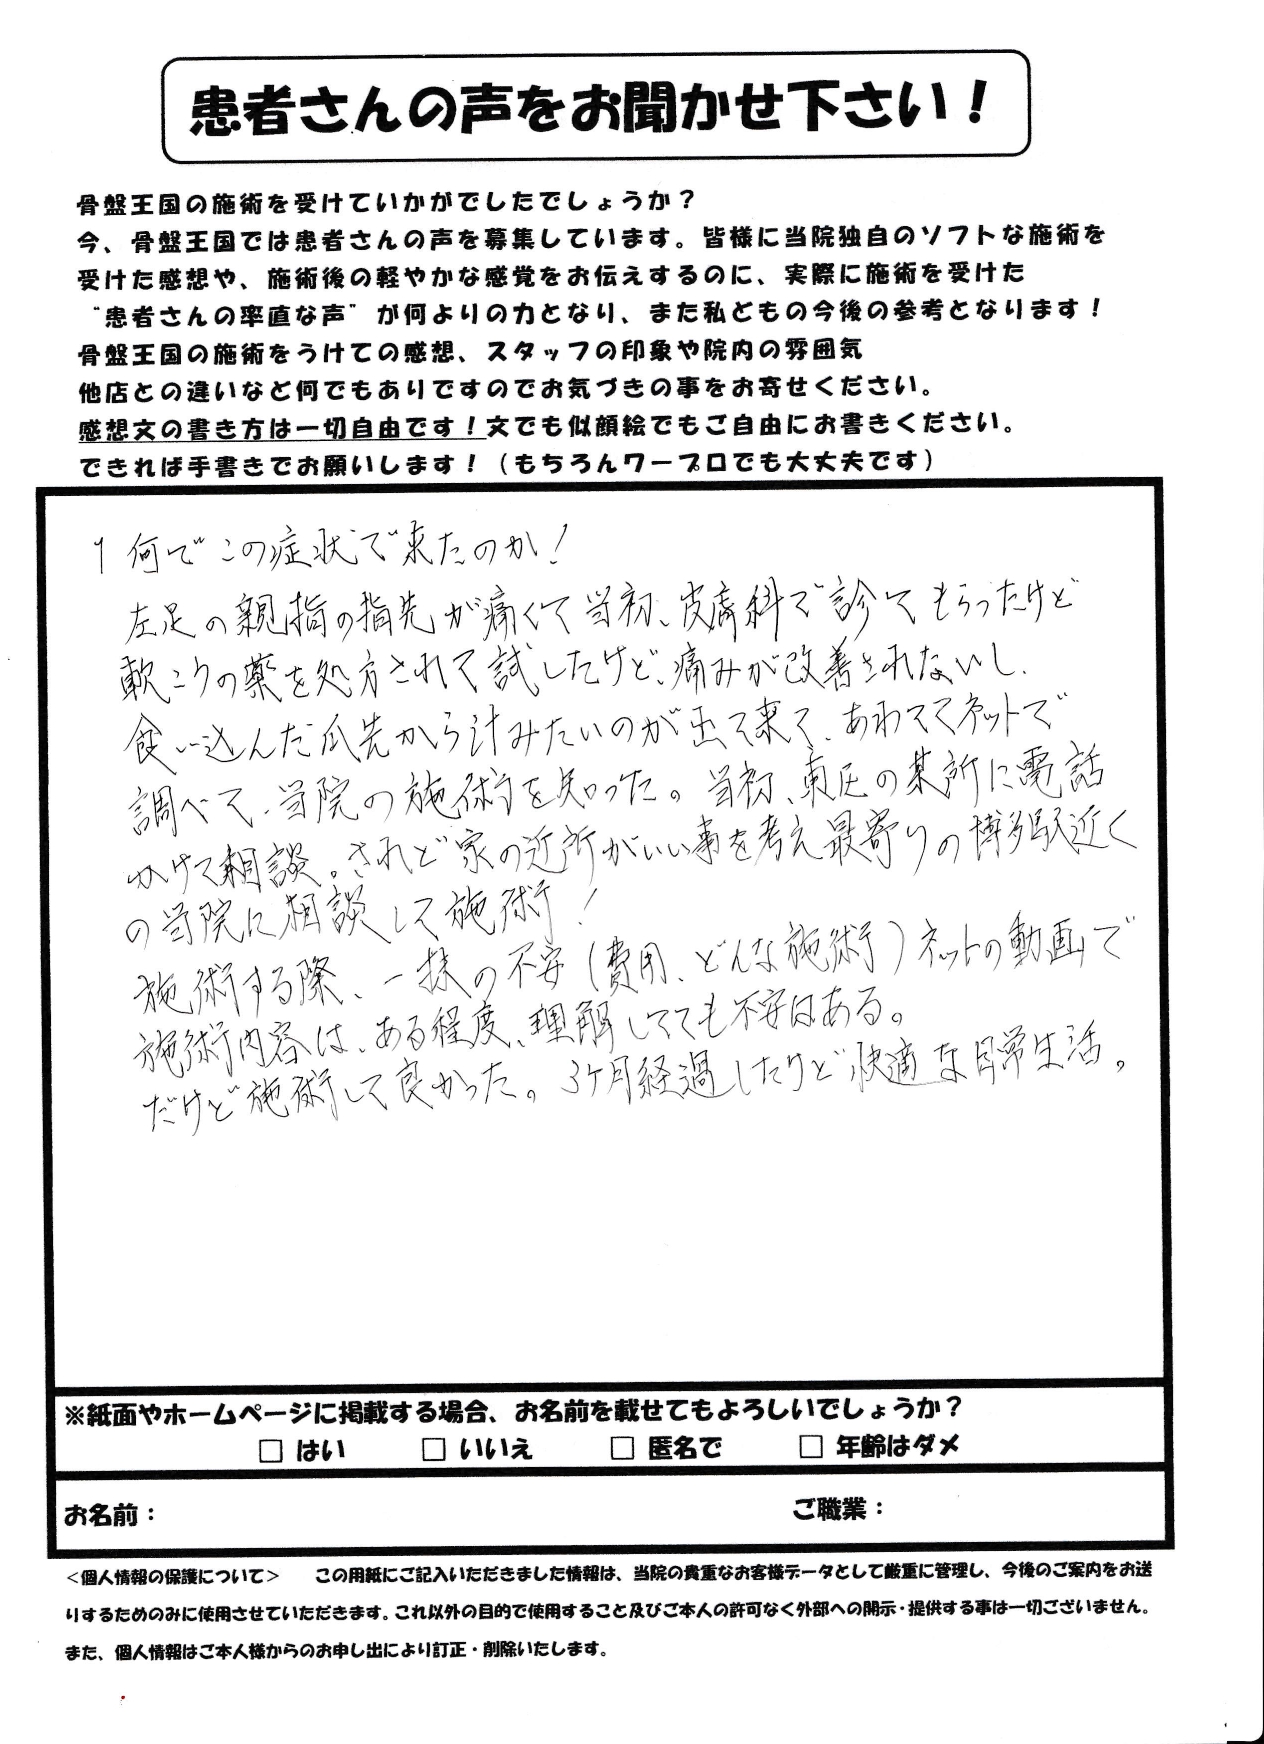 患者さんの声をお聞かせ下さい！
骨盤王国の施術を受けていかがでしたでしょうか？
今、骨盤王国では患者さんの声を募集しています。皆様に当院独自のソフトな施術を
受けた感想や、施術後の軽やかな感覚をお伝えするのに、実際に施術を受けた
“患者さんの率直な声”が何よりの力となり、また私どもの今後の参考となります！
骨盤王国の施術をうけての感想、スタッフの印象や院内の雰囲気
他店との違いなど何でもありですのでお気づきの事をお寄せください。
感想文の書き方は一切自由です！文でも似顔絵でもご自由にお書きください。
できれば手書きでお願いします！（もちろんワープロでも大丈夫です）
1 何でこの症状で来たのか！
左足の親指の指先が痛くて当初、皮膚科で診てもらったけど
軟こうの薬を処方されて試したけど、痛みが改善されないし、
食い込んだ爪先から汁みたいのが出て来て、あわててネットで
調べて、当院の施術を知った。当初、東区の某所に電話
かけて相談。されど家の近所がいい事を考え最寄りの博多駅近く
の当院に相談して施術！
施術する際、一抹の不安（費用、どんな施術）ネットの動画で
施術内容は、ある程度、理解してても不安はある。
だけど施術して良かった。3ケ月経過したけど快適な日常生活。
※紙面やホームページに掲載する場合、お名前を載せてもよろしいでしょうか？
□ はい □ いいえ □ 匿名で □ 年齢はダメ
お名前： ご職業：
＜個人情報の保護について＞ この用紙にご記入いただきました情報は、当院の貴重なお客様データとして厳重に管理し、今後のご案内をお送
りするためのみに使用させていただきます。これ以外の目的で使用すること及びご本人の許可なく外部への開示・提供する事は一切ございません。
また、個人情報はご本人様からのお申し出により訂正・削除いたします。